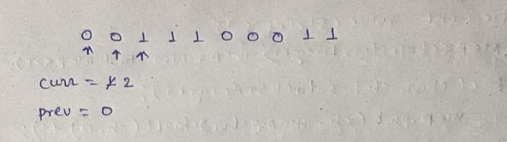 0 0 1 1 1 0 0 0 1 1
↑ ↑ ↑
curr = 1 2
prev = 0